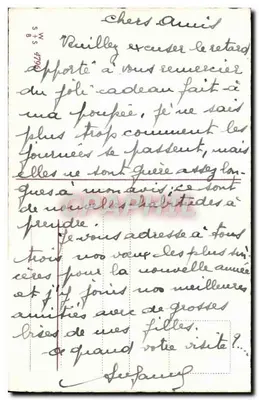 Chers Amis
Veuillez excuser le retard
apporté à vous remercier
du joli cadeau fait à
ma poupée, je ne sais
plus trop comment les
journées se passent, mais
elles ne sont guère assez lon-
gues à mon avis, ce sont
de nouvelles habitudes à
prendre.
Je vous adresse à tous
trois nos vœux les plus sin-
cères pour la nouvelle année
et j'y joins nos meilleures
amitiés avec de grosses
bises de mes filles.
à quand votre visite ?...